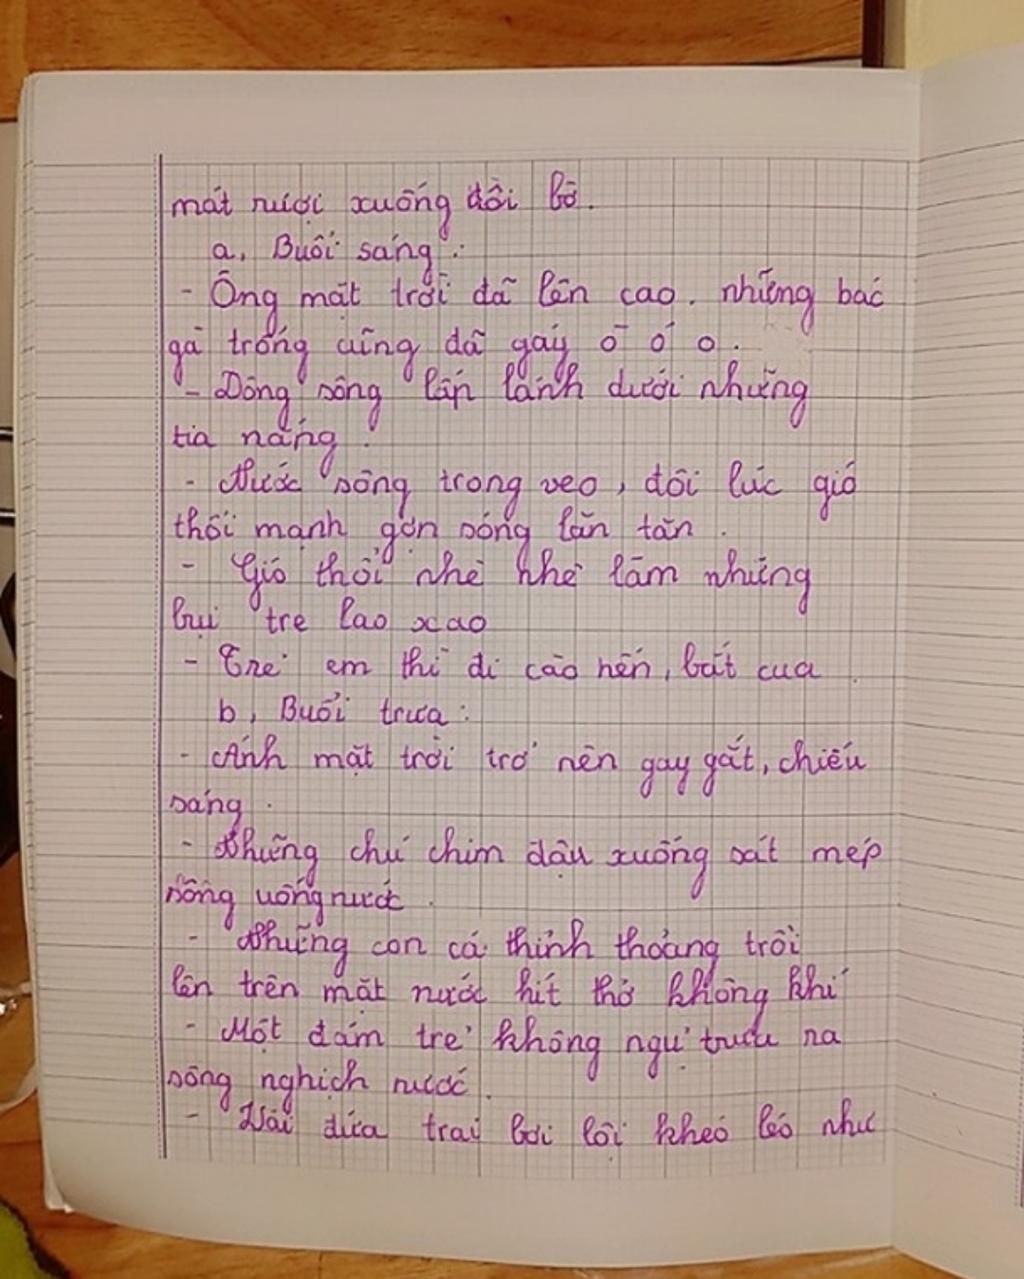 mát rượi xuống đôi bờ.
a, Buổi sáng :
- Ông mặt trời đã lên cao. những bác
gà trống cũng đã gáy ò ó o.
- Dòng sông lấp lánh dưới những
tia nắng.
- Nước sông trong veo, đôi lúc gió
thổi mạnh gợn sóng lăn tăn.
- Gió thổi nhè nhẹ làm những
bụi tre lao xao
- Trẻ em thì đi cào hến, bắt cua.
b, Buổi trưa :
- Ánh mặt trời trở nên gay gắt, chiếu
sáng.
- Những chú chim đậu xuống sát mép
sông uống nước.
- Những con cá thỉnh thoảng trồi
lên trên mặt nước hít thở không khí
- Một đám trẻ không ngủ trưa ra
sông nghịch nước.
- Vài đứa trai bơi lội khéo léo như